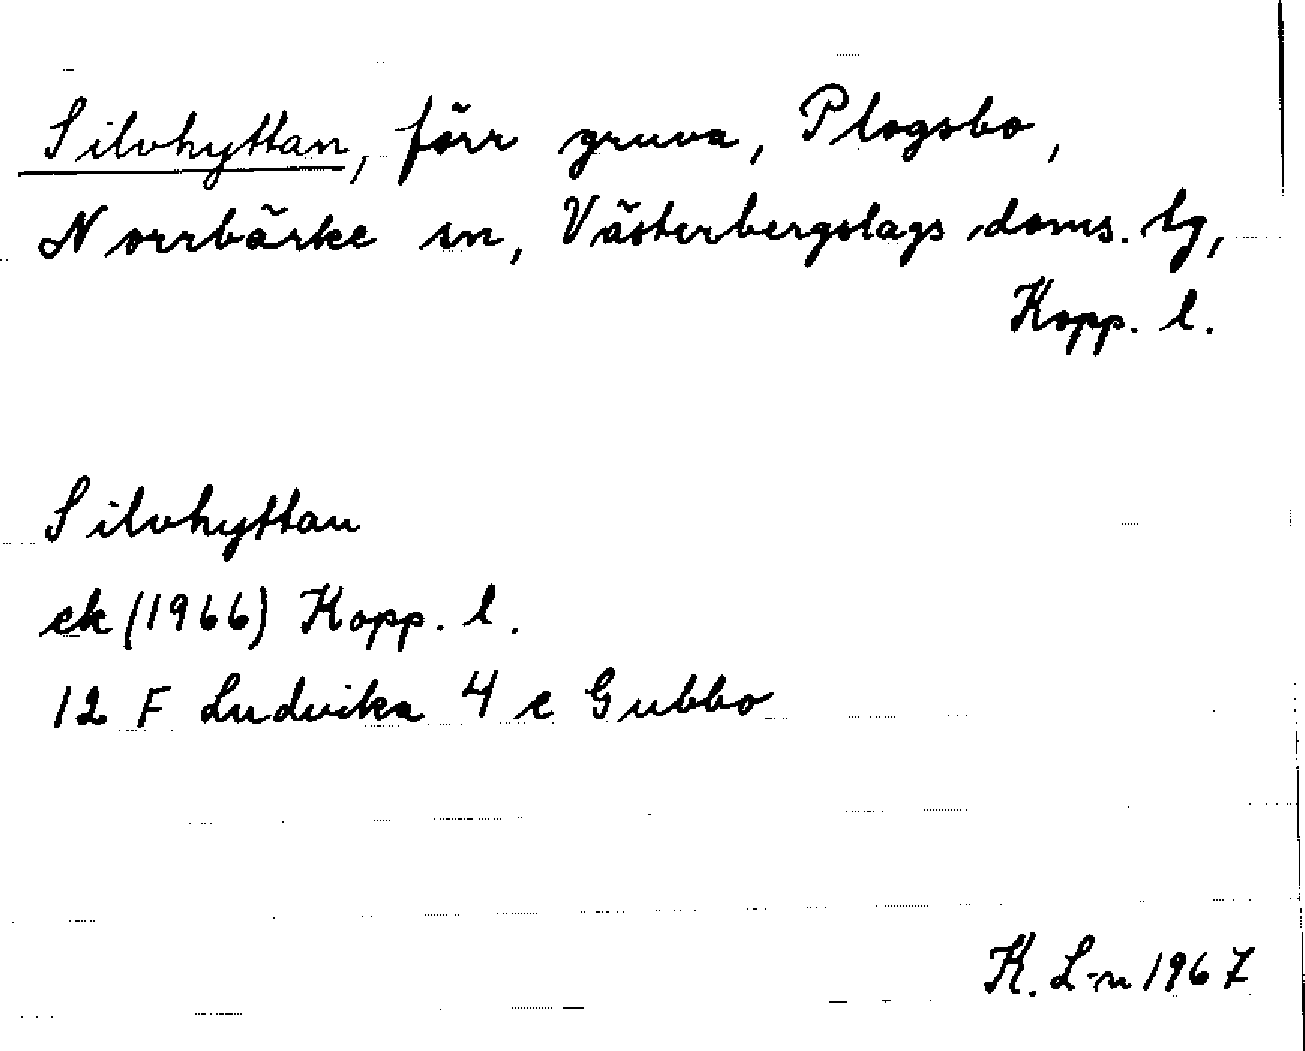 Silvhyttan, förr gruva, Plogsbo,
Norrbärke sn, Västerbergslags doms. lg,
Kopp. l.
Silvhyttan
ek (1966) Kopp. l.
12 F Ludvika 4 c Gubbo
K. L-n 1967